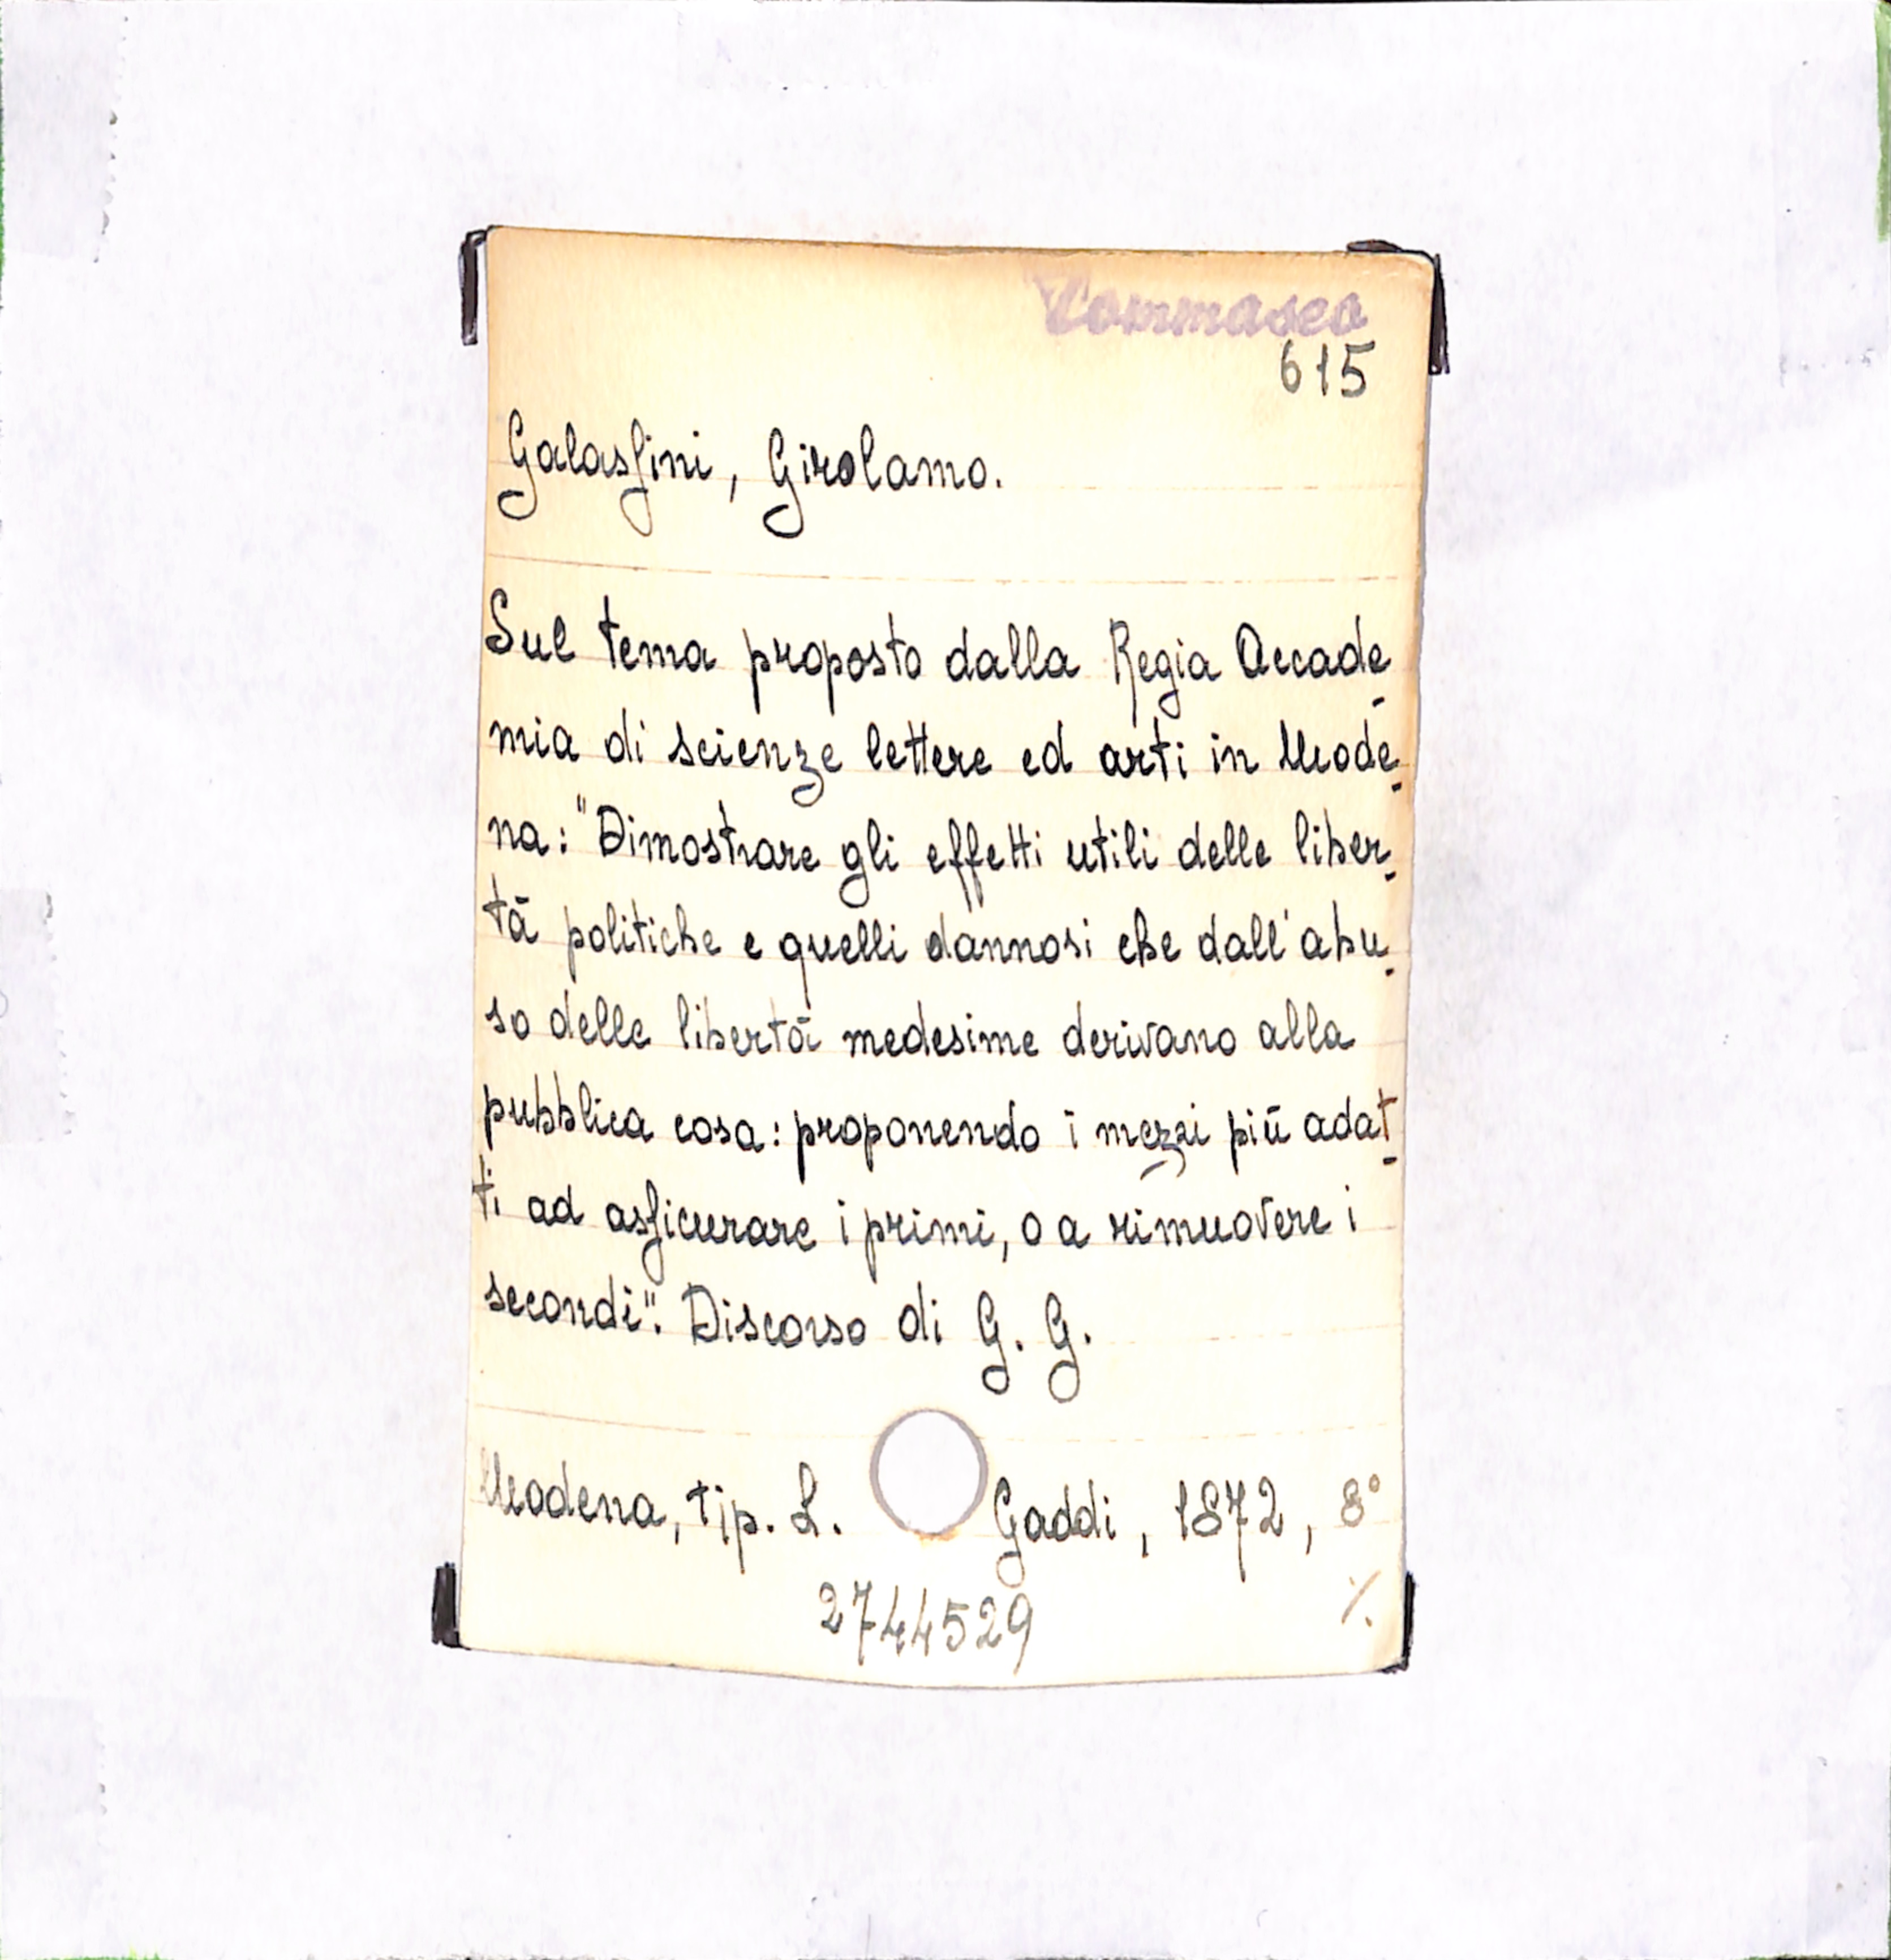 Tommaseo
615
Galassini, Girolamo.
Sul tema proposto dalla Regia Accade-
mia di scienze lettere ed arti in Mode-
na: "Dimostrare gli effetti utili delle liber-
tà politiche e quelli dannosi che dall'abu-
so delle libertà medesime derivano alla
pubblica cosa: proponendo i mezzi più adat-
ti ad assicurare i primi, o a rimuovere i
secondi". Discorso di G. G.
Modena, tip. L. Gaddi, 1872, 8°
2744529 %